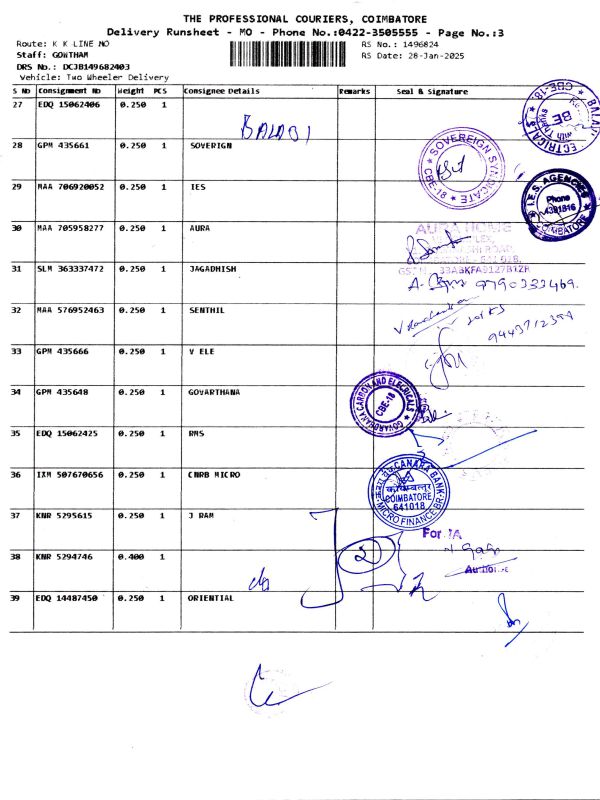 THE PROFESSIONAL COURIERS, COIMBATORE
Delivery Runsheet - MO - Phone No.:0422-3505555 - Page No.:3
Route: K K LINE MO
RS No.: 1496824
Staff: GOWTHAM
RS Date: 28-Jan-2025
DRS No.: DCJB149682403
Vehicle: Two Wheeler Delivery
S No Consignment No Weight PCS Consignee Details Remarks Seal & Signature
27 EDQ 15062406 0.250 1
BALABI
28 GPM 435661 0.250 1 SOVERIGN
SOVEREIGN SYNDICATE CBE-18
29 MAA 706920052 0.250 1 IES
I.E.S. AGENCIES
Phone
4391816
COIMBATORE
30 MAA 705958277 0.250 1 AURA
AURA HOME
31 SLM 363337472 0.250 1 JAGADHISH
9790333469.
32 MAA 576952463 0.250 1 SENTHIL
9443712394
33 GPM 435666 0.250 1 V ELE
34 GPM 435648 0.250 1 GOVARTHANA
GOVARDHANA CARBON AND ELECRICALS
CBE-18
35 EDQ 15062425 0.250 1 RMS
36 IXM 507670656 0.250 1 CNRB MICRO
CANARA BANK
कोयम्बत्तूर
COIMBATORE
641018
MICRO FINANCE BR.
37 KNR 5295615 0.250 1 J RAM
For
38 KNR 5294746 0.400 1
2
39 EDQ 14487450 0.250 1 ORIENTIAL